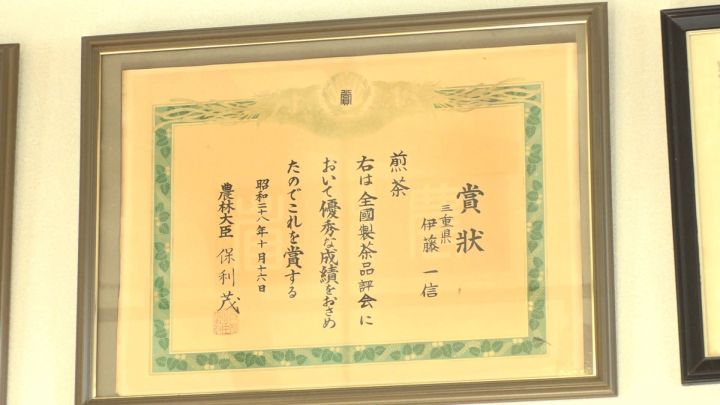 賞
賞狀
三重県
伊藤一信
煎茶
右は全國製茶品評会に
おいて優秀な成績をおさめ
たのでこれを賞する
昭和二十八年十月十六日
農林大臣 保利茂